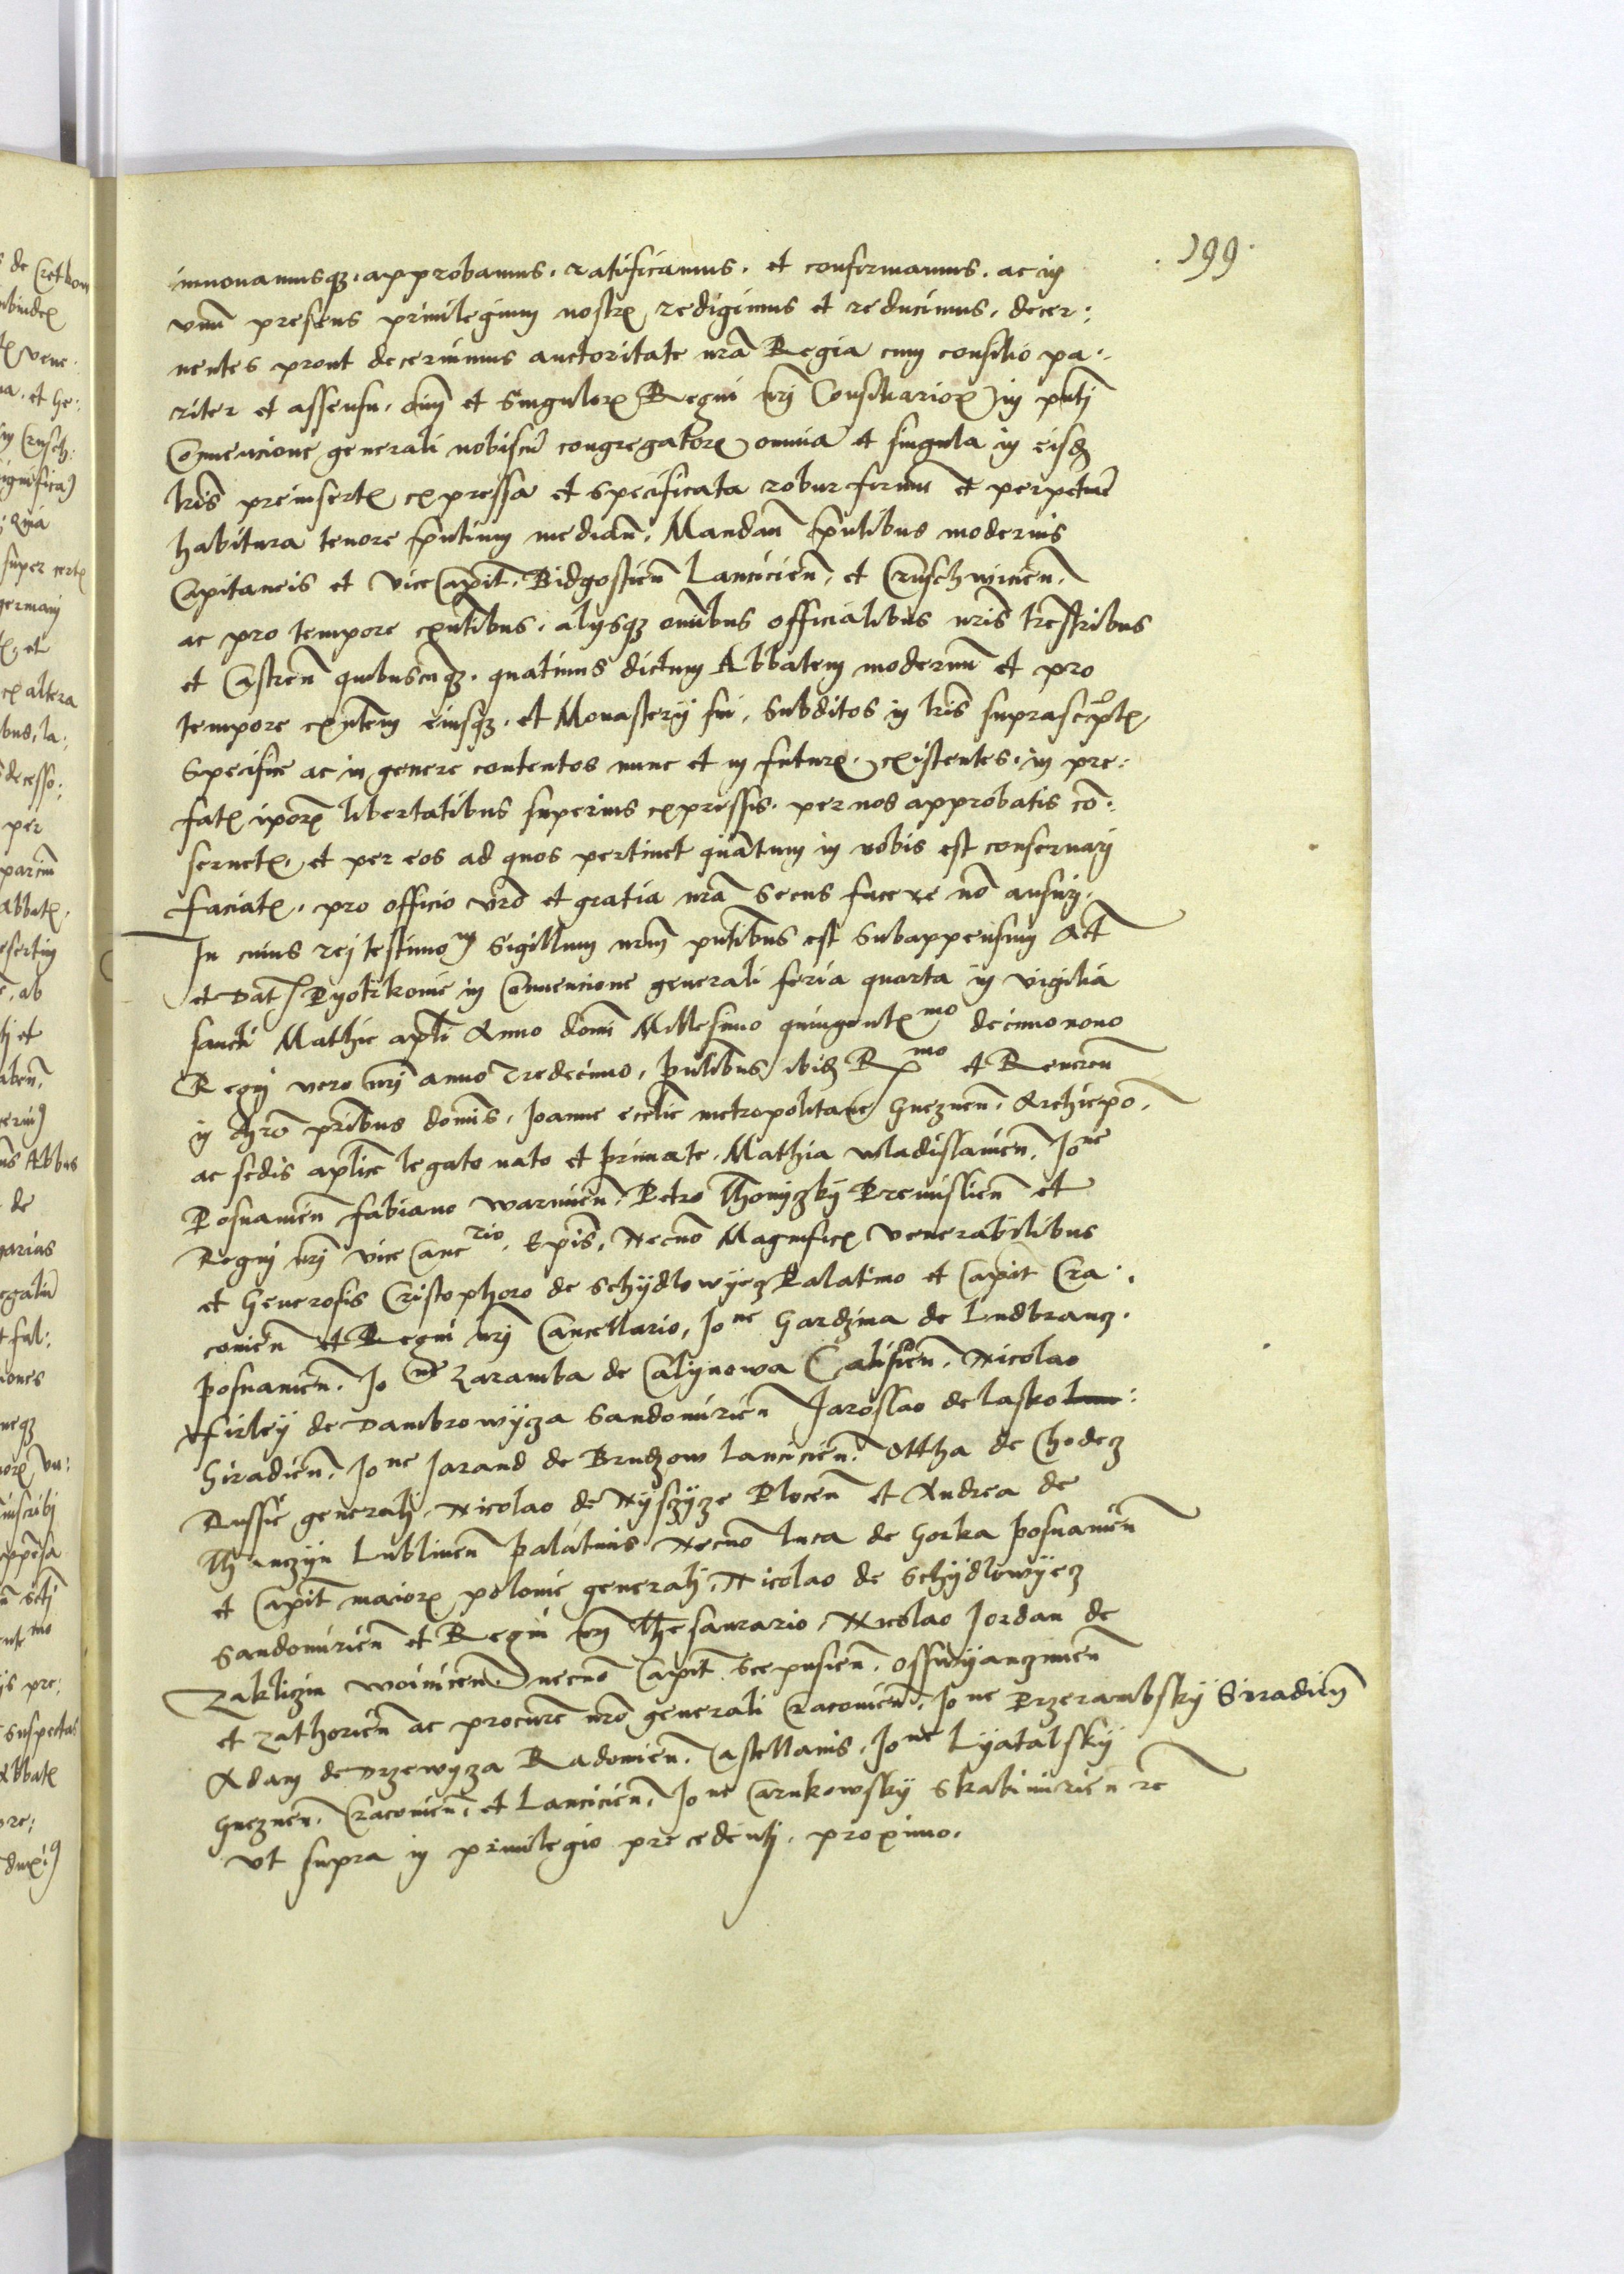 199.
innouamusqz. approbamus. ratificamus. et confirmamus. ac in
vnū presens priuilegium nostrꝝ redigimus et reducimus. decer:
nentes prout decernimus auctoritate nrā Regia cum consilio pa.
riter et assensu. oīm et Singulorꝝ Regni nrj Consiliariorꝝ in pntj
Conuencione generali nobiscū congregatorꝝ omnia et singula in eisdz
lrīs preinsertꝭ expressa et Specificata robur firmū et perpetuū
habitura tenore pn̄tium mediañ. Mandañ pn̄tibus modernis
Capitaneis et vice Capit. Bidgostieñ Lancicieñ. et Cruschwicieñ.
ac pro tempore exn̄tibus. alysqz omībus officialibus nrīs tr̄estribus
et Castreñ quibuscūqz. quatinus dictum Abbatem modernū et pro
tempore exn̄tem eiusqz. et Monasterÿ sui, Subditos in lrīs suprascr̄ptꝭ
Specifice ac in genere contentos nunc et in futurꝝ. existentes. in pre:
fatꝭ ip̄orꝝ libertatibus superius expressis. per nos approbatis cō:
seruetꝭ. et per eos ad quos pertinet quātum in vobis est conseruarj
faciatꝭ. pro officio vrō et gratia nrā Secus facere nō ausurj.
In cuius rej testimoⁿⁱᵘᵐ Sigillum nrūm pn̄tibus est Subappensum Act̄
et Dat̄ Pyotrkouie in Conuencione generali feria quarta in vigilia
sancti Mathie apl̄i Anno domī Millesimo quingentꝭᵐᵒ decimo nono
Regnj vero nrj anno Tredecimo. pn̄tibus ibidz Rᵐᵒ et Reuereñ
in chrō pr̄ibus domīs. Joanne ecclīe metropolitane Gnezneñ. Archiepō.
ac sedis aplīce legato nato et primate. Mathia wladislauieñ. Joⁿᵉ
Posnanieñ fabiano warmieñ. Petro Thomyczkÿ Premislieñ et
Regnj nrj vice Cancʳⁱᵒ. Epīs. Necnō Magnificꝭ venerabilibus
et Generosis Cristophoro de Schÿdlowÿecz Palatino et Capit Cra.
couieñ et Regni nrj Cancellario, Joⁿᵉ Gardzina de Ludbrancz.
posnanieñ. Joⁿᵉ Zaramba de Calÿnowa Calisieñ. Nicolao
ffirleÿ de Dambrowÿcza Sandomirieñ Jaroslao de lasko
Siradieñ. Joⁿᵉ Jarand de Brudzow lancicieñ. Ottha de Chodecz
Russie generalj. Nicolao de Nÿsczÿcze Ploceñ et Andrea de
Thanczyn Lublineñ palatinis Necnō luca de Gorka posnanieñ
et Capit̄ maiorꝭ polonie generalj. Nicolao de Schÿdlowÿecz
Sandomirieñ et Regni nrj Thesaurario. Nicolao Jordan de
Zakliczin woiniceñ. necnō Capit̄ Scepusieñ. Osswÿanczimeñ
et Zathorieñ ac procuř nrō generali Cracouieñ. Joⁿᵉ Przerambskÿ Siradieñ
Adam de Drzewycza Radomieñ. Castellanis. Joⁿᵉ Lÿatalskÿ
Gnezneñ. Cracouieñ. et Lancicieñ. Joⁿᵉ Carnkowskÿ Skalimirieñ rc̄
vt supra in priuilegio precedentj. proximo.